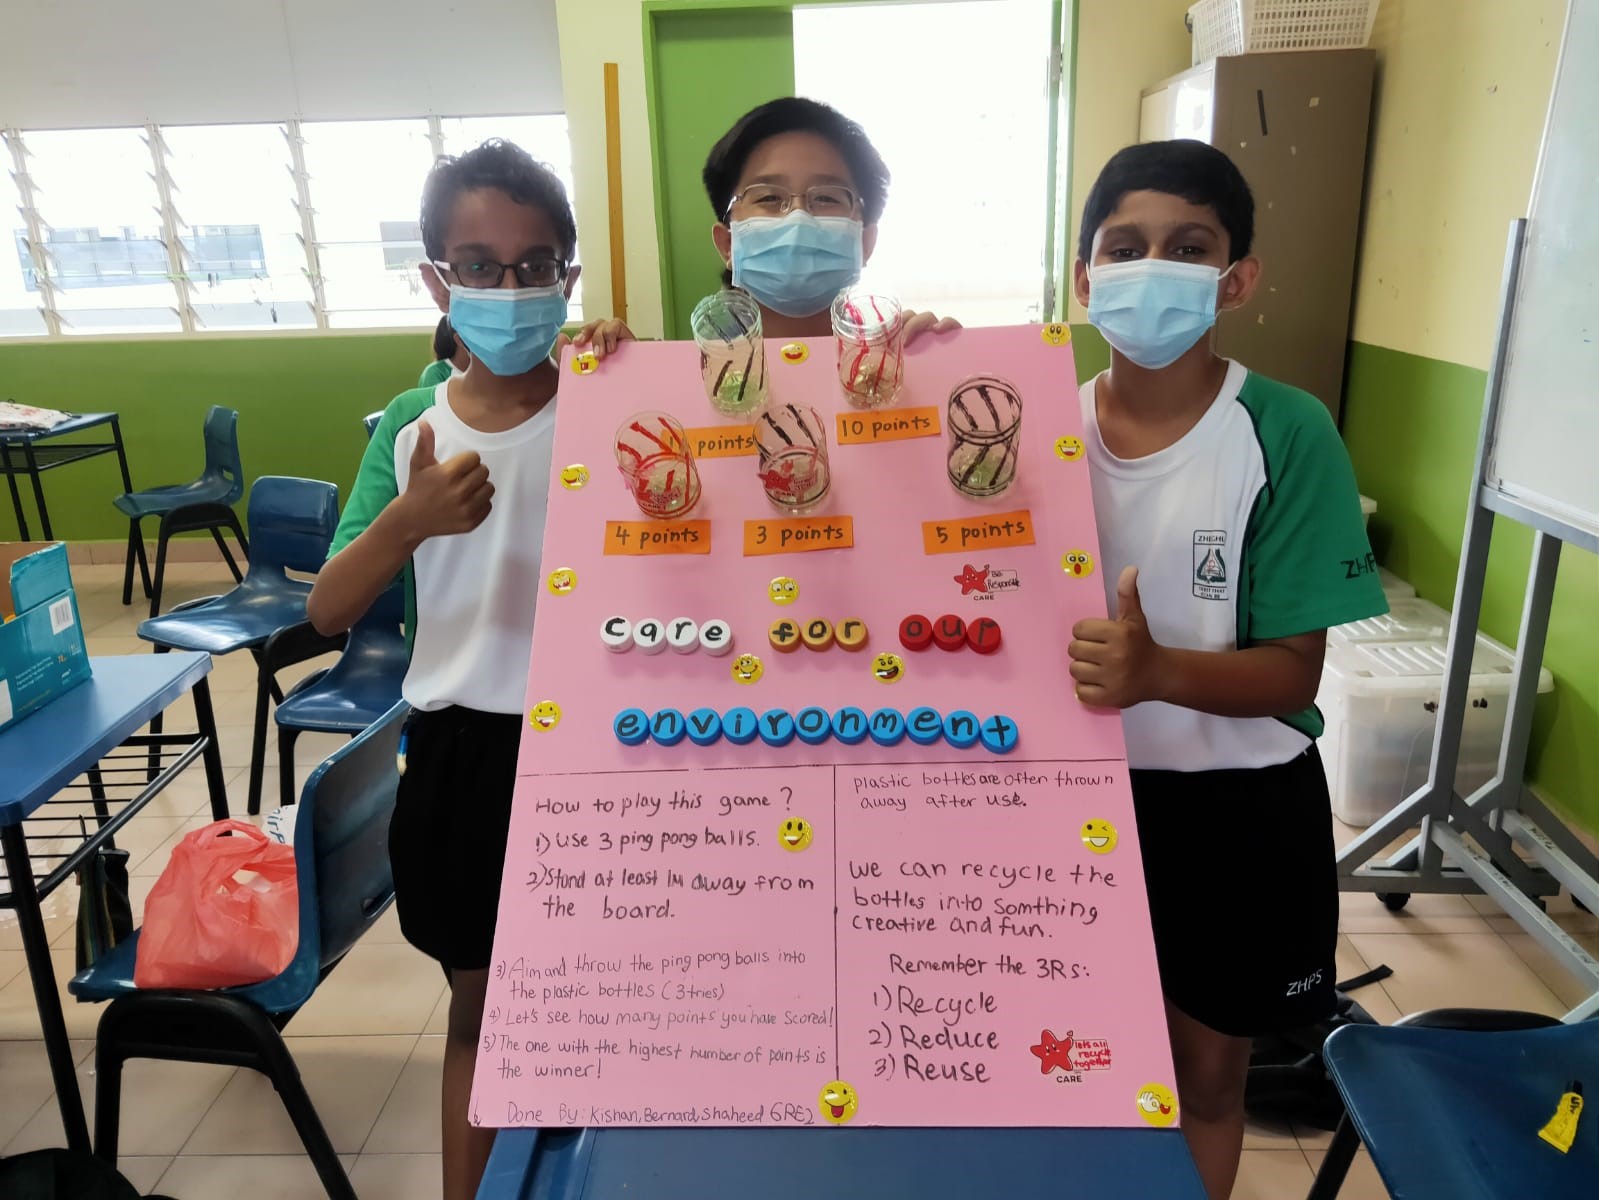 points
10 points
4 points
3 points
5 points
Be
Responsible
CARE
CARE
care for our
environment
How to play this game?
1) Use 3 ping pong balls.
2) Stand at least 1M away from
the board.
3) Aim and throw the ping pong balls into
the plastic bottles (3 tries)
4) Let's see how many points you have scored!
5) The one with the highest number of points is
the winner!
Done By: Kishan, Bernard, Shaheed 6RE2
plastic bottles are often thrown
away after use.
we can recycle the
bottles into somthing
creative and fun.
Remember the 3Rs:
1) Recycle
2) Reduce
3) Reuse
let's all
recycle
together
CARE
ZHENGHUA
ZHPS